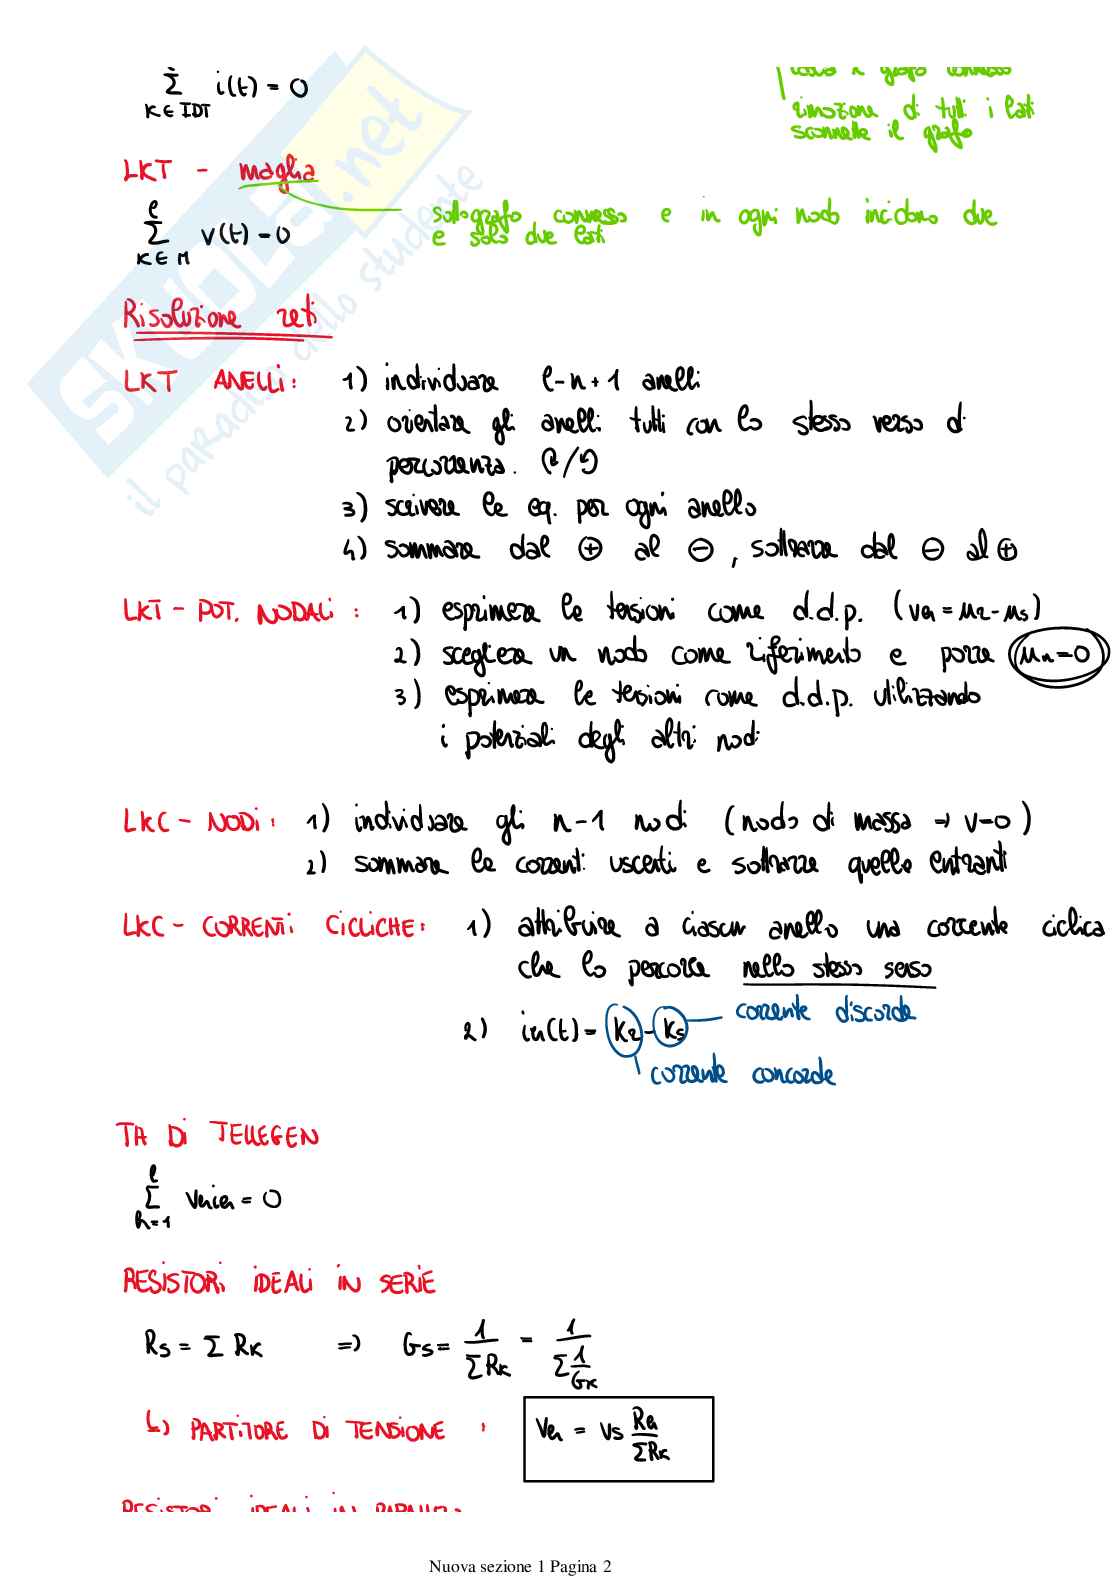 Σ i(t) = 0
K ∈ IDT
rimozione di tutti i lati
sconnette il grafo
LKT - maglia
l
Σ v(t) = 0
K ∈ M
sottografo connesso e in ogni nodo incidono due
e solo due lati
Risoluzione reti
LKT ANELLI: 1) individuare l-n+1 anelli
2) orientare gli anelli tutti con lo stesso verso di
percorrenza. ↻/↺
3) scrivere le eq. per ogni anello
4) sommare dal ⊕ al ⊖, sottrarre dal ⊖ al ⊕
LKT - POT. NODALI: 1) esprimere le tensioni come d.d.p. (vh = ur - us)
2) scegliere un nodo come riferimento e porre un = 0
3) esprimere le tensioni come d.d.p. utilizzando
i potenziali degli altri nodi
LKC - NODI: 1) individuare gli n-1 nodi (nodo di massa → v=0)
2) sommare le correnti uscenti e sottrarre quelle entranti
LKC - CORRENTI CICLICHE: 1) attribuire a ciascun anello una corrente ciclica
che lo percorre nello stesso senso
2) ih(t) = Kr - Ks corrente discorde
corrente concorde
TA DI TELLEGEN
l
Σ vh ih = 0
h=1
RESISTORI IDEALI IN SERIE
Rs = Σ Rk => Gs = 1/ΣRk = 1/Σ 1/Gk
↳ PARTITORE DI TENSIONE: Vh = Vs Rh/ΣRk
RESISTORI IDEALI IN PARALLELO
SKUOLA.net
il paradiso dello studente
Nuova sezione 1 Pagina 2